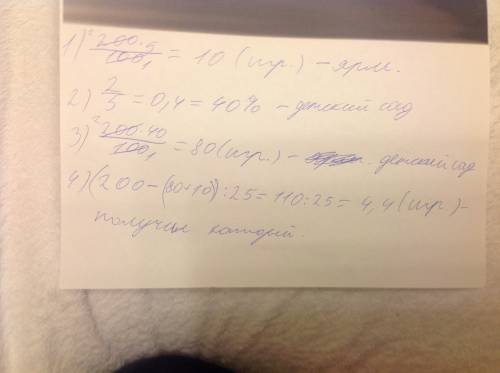 1) 200·5/100 = 10 (игр.) – ярм.
2) 2/5 = 0,4 = 40% – детский сад
3) 200·40/100 = 80 (игр.) – детский сад
4) (200 – (80+10)) : 25 = 110 : 25 = 4,4 (игр) –
получил каждый.